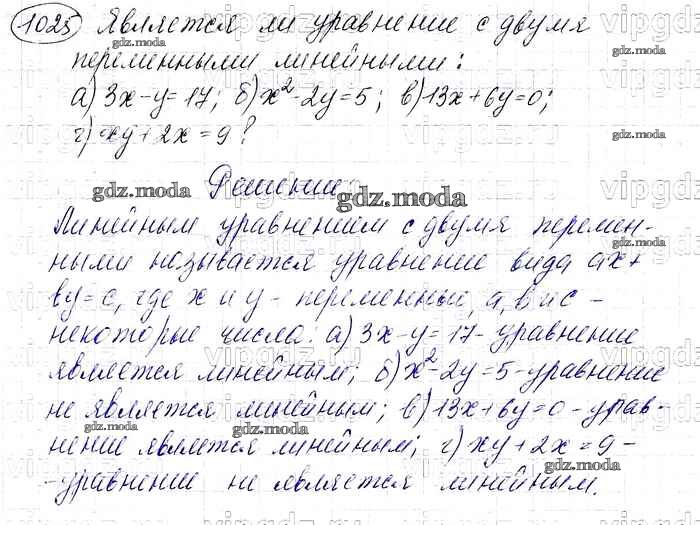 1025 Является ли уравнение с двумя
переменными линейными:
а) 3x-y=17; б) x²-2y=5; в) 13x+6y=0;
г) xy+2x=9?
Решение:
Линейным уравнением с двумя перемен-
ными называется уравнение вида ax+
by=c, где x и y - переменные, a, b и c -
некоторые числа: а) 3x-y=17 - уравнение
является линейным; б) x²-2y=5 - уравнение
не является линейным; в) 13x+6y=0 - урав-
нение является линейным; г) xy+2x=9 -
-уравнение не является линейным.
gdz.moda
vipgdz